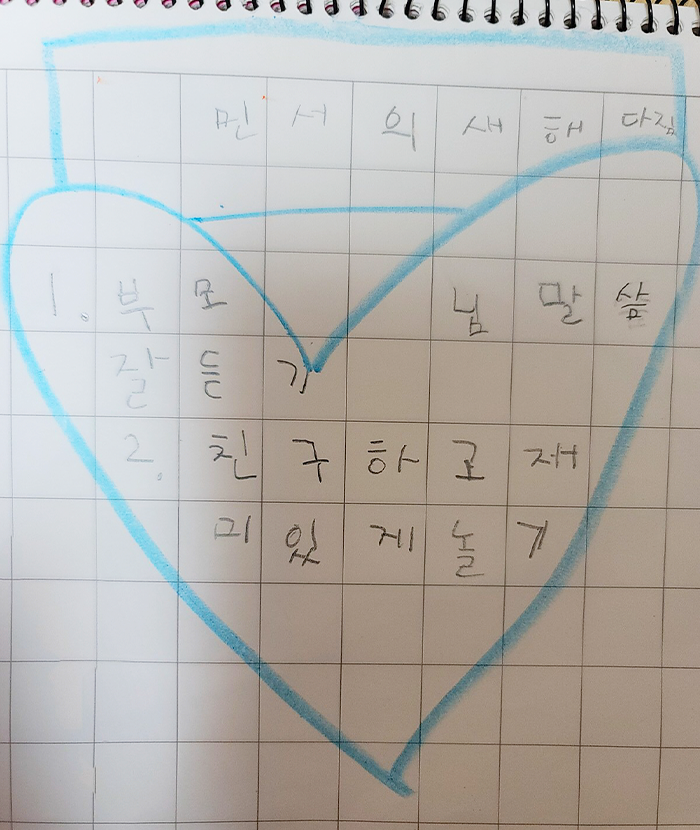 민서의 새해 다짐
1. 부모님 말씀
잘 듣기
2. 친구하고 재
미있게 놀기